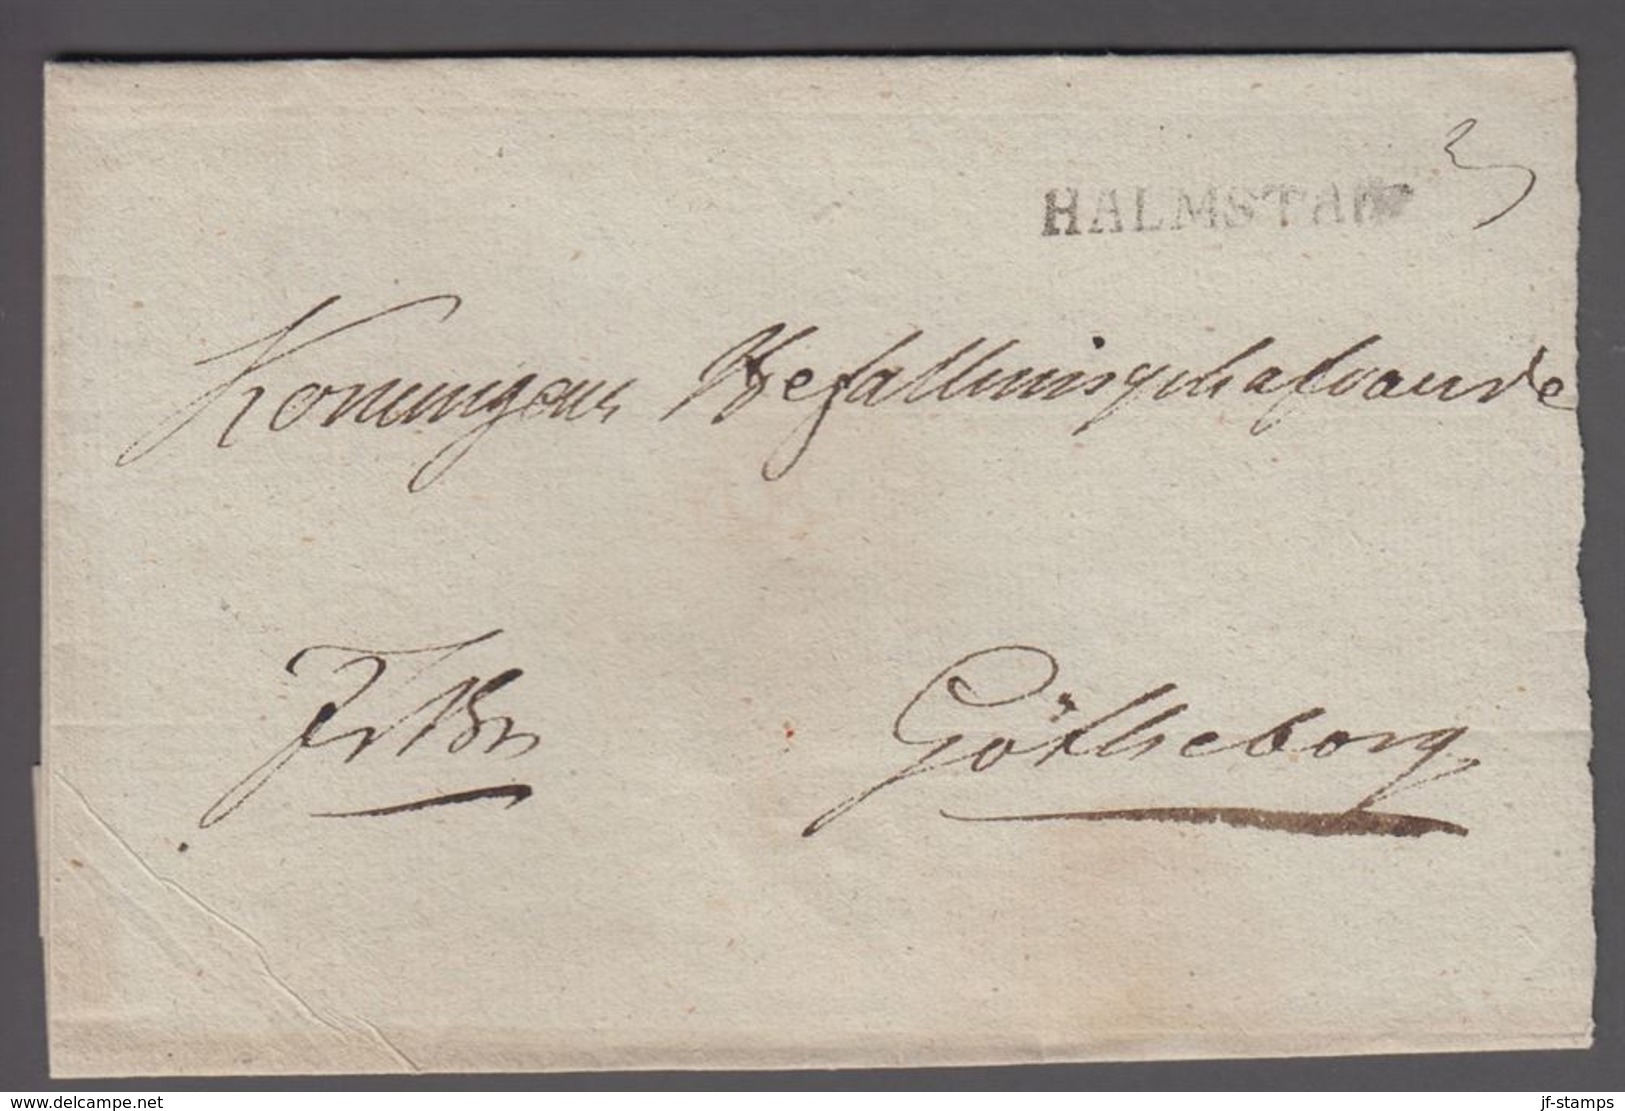 HALMSTAD
Konungens Befallningshafvande
Götheborg
www.delcampe.net
jf-stamps